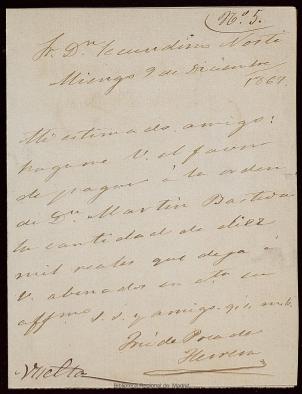 Nº 5.
Sr. Dn. Secundino Norti
Miengo 9 de Diciembre
1867.
Mi estimado amigo:
hagame V. el favor
de pagar á la orden
de Dn. Martin Bastida
la cantidad de diez
mil reales que deja á
V. abonados en cta. su
affmo. s. s. y amigo q. s. m. b.
José de Posada
Herrera
Vuelta
Biblioteca Regional de Madrid